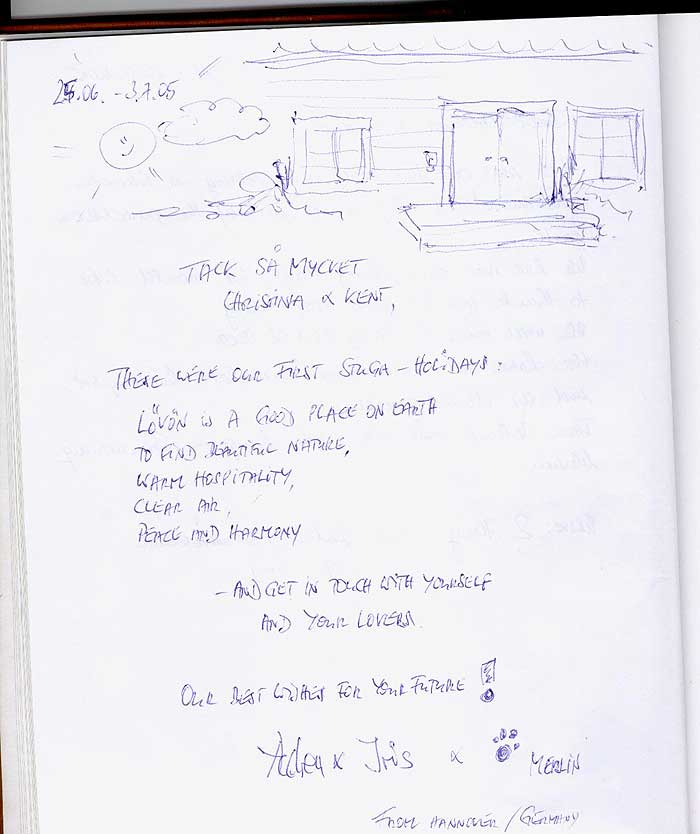 25.06. - 3.7.05
TACK SÅ MYCKET
CHRISTINA & KENT,
THERE WERE OUR FIRST STUGA - HOLIDAYS:
LÖVÖN IS A GOOD PLACE ON EARTH
TO FIND BEAUTIFUL NATURE,
WARM HOSPITALITY,
CLEAR AIR,
PEACE AND HARMONY
- AND GET IN TOUCH WITH YOURSELF
AND YOUR LOVERS.
OUR BEST WISHES FOR YOUR FUTURE !
& Iris & MERLIN
FROM HANNOVER / GERMANY